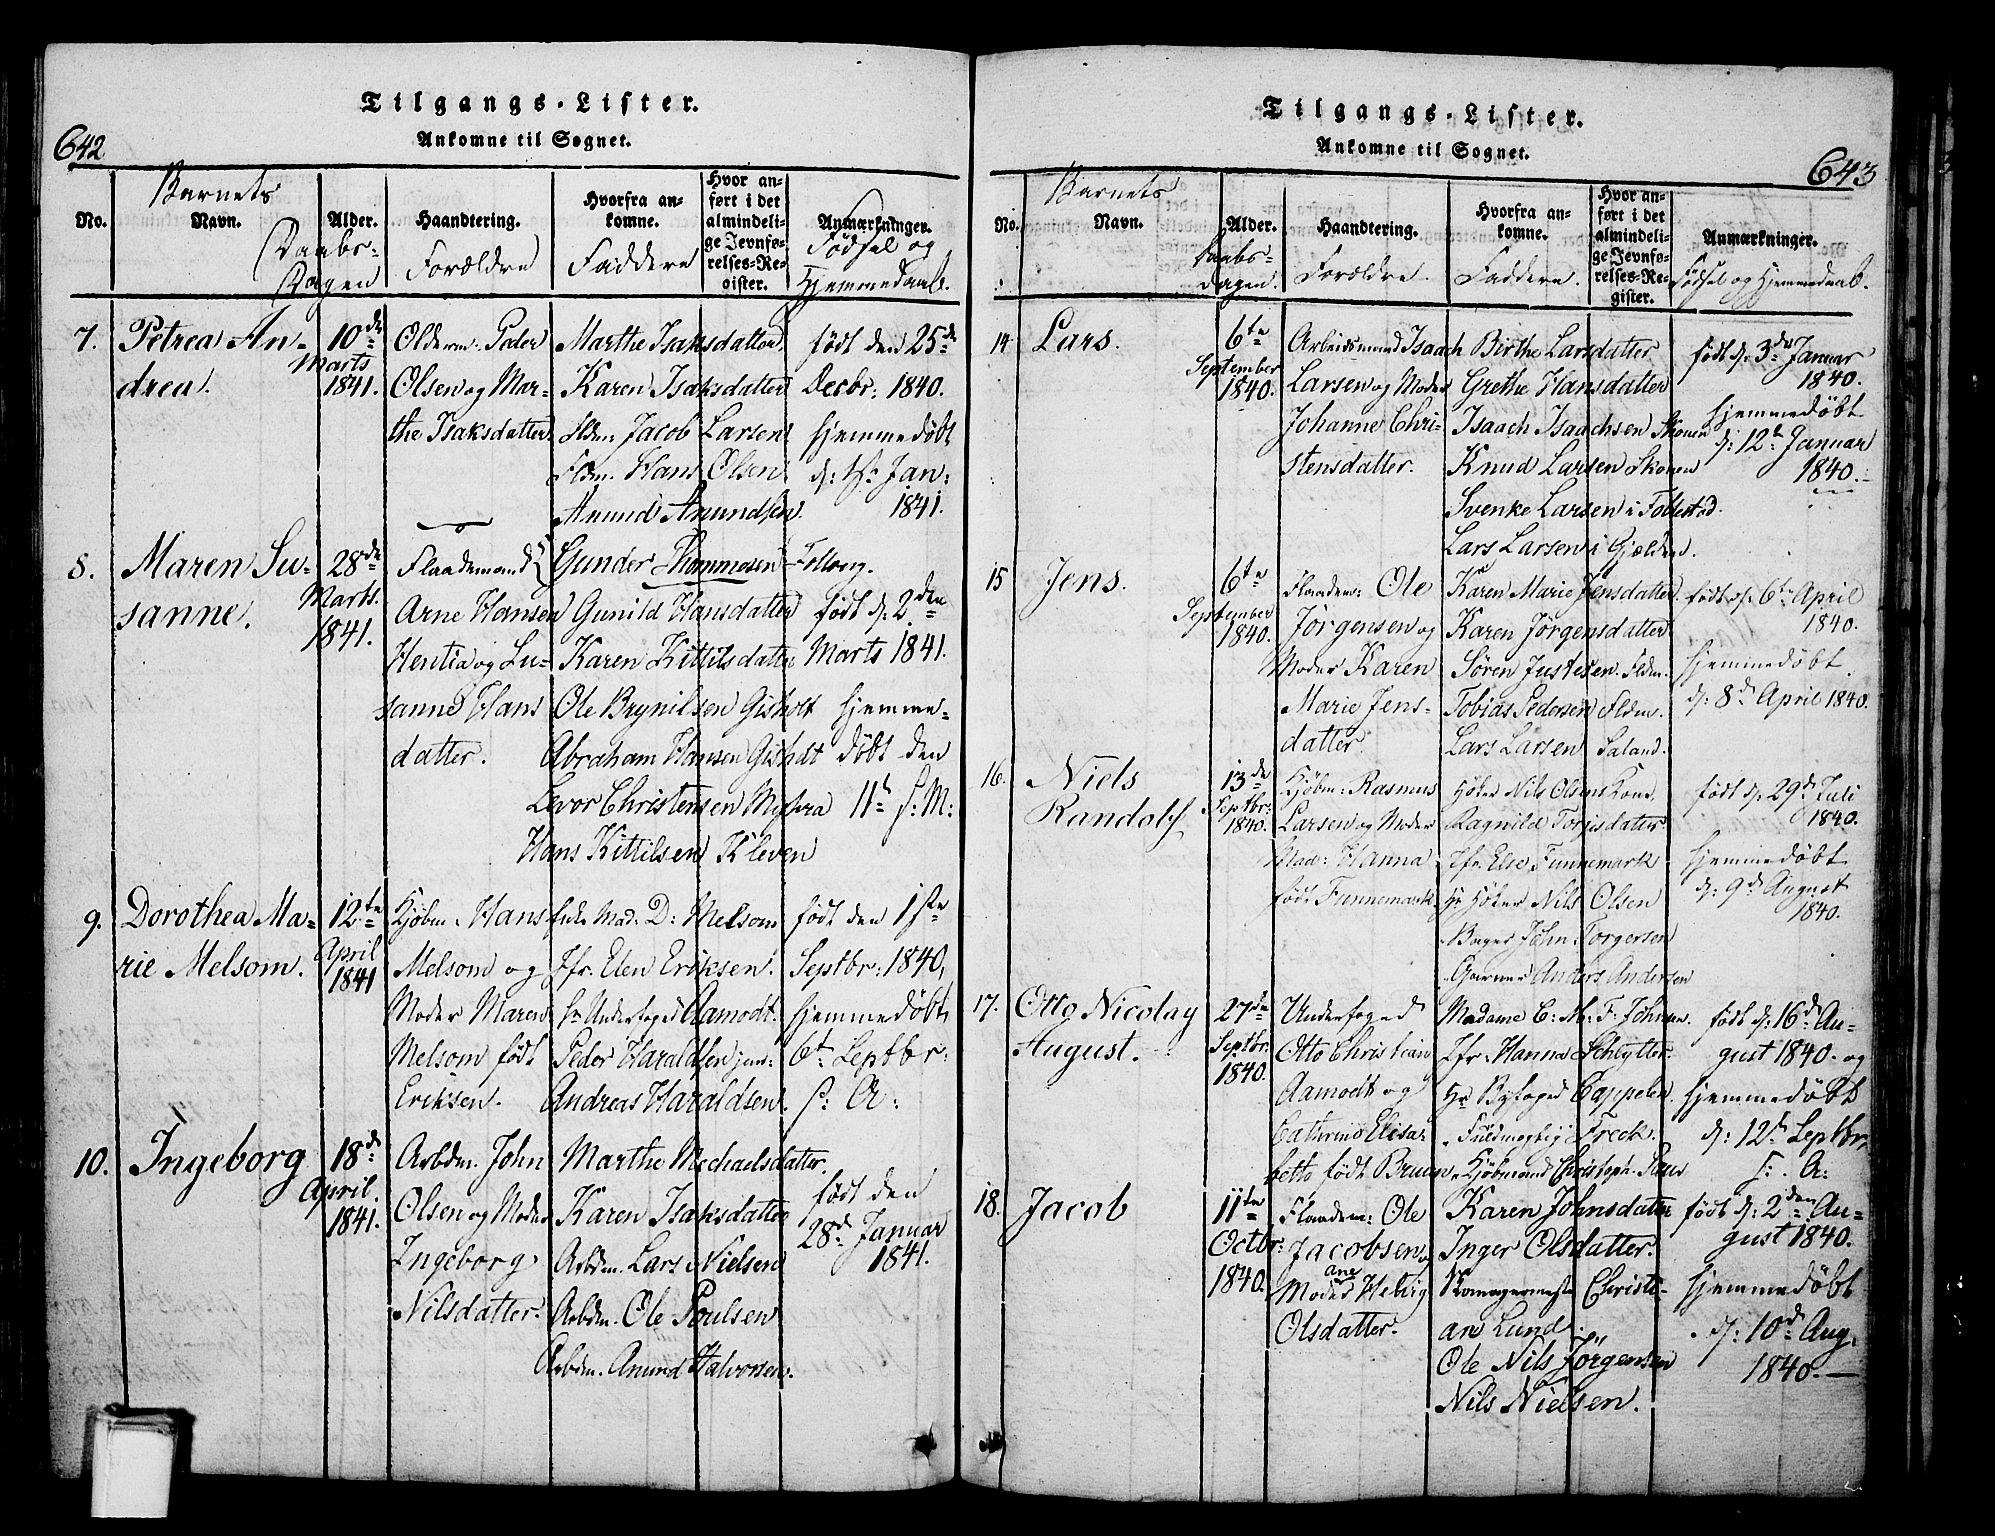 642
Tilgangs-Lister.
Ankomne til Sognet.
No.
Barnets
Navn.
Daabs-
Dagen
Alder.
Haandtering.
Forældre
Hvorfra an-
komne.
Faddere
Hvor an-
ført i det
almindeli-
ge Jevnfø-
relses-Re-
gister.
Anmærkninger.
Fødsel og
Hjemmedaab.
7.
Petrea An-
drea.
10de
Marts
1841.
Oldem. Peder
Olsen og Mar-
the Isaksdatter
Marthe Isaksdatter
Karen Isaksdatter
Fldm. Jacob Larsen
Fldm. Hans Olsen
Anund Anundsen.
født den 25de
Decbr: 1840.
hjemmedøbt
Jan:
1841.
8.
Maren Su-
sanne.
28de
Marts.
1841.
Flaademand
Arne Hansen
Hentia og Su-
sanne Hans
datter.
Gunder Thommesen
Gunild Hansdatter
Karen Kittilsdatter
Ole Brynilsen Gisholt
Abraham Hansen Gisholt
Levor Christensen
Hans Kittilsen Kleven
født d: 2den
Marts 1841.
hjemme-
døbt den
11t s: M:
9.
Dorothea Ma-
rie Melsom.
12te
April
1841
Kjøbm. Hans
Melsom og
Moder Maren
Melsom født
Eriksen.
Enke Mad. D: Melsom
Jfr. Elen Eriksen.
Hr Underfoged Aamodt.
Peder Haraldsen jun:
Andreas Haraldsen.
født den 1ste
Septbr: 1840,
hjemmedøbt
6t Septbr:
s: A:
10.
Ingeborg
18de
April.
1841.
Arbdm. John
Olsen og Moder
Ingeborg
Nilsdatter.
Marthe Michaelsdatter.
Karen Isaksdatter
Arbdm. Lars Nielsen
Arbdm. Ole Poulsen
Arbdm. Anund Halvorsen.
født den
28d Januar
1841.
643
Tilgangs-Lister.
Ankomne til Sognet.
No.
Barnets
Navn.
Alder.
Daabs-
Dagen.
Haandtering.
Forældre.
Hvorfra an-
komne.
Faddere.
Hvor an-
ført i det
almindeli-
ge Jevnfø-
relses-Re-
gister.
Anmærkninger.
Fødsel og Hjemmedaab.
14
Lars.
6te
September
1840.
Arbeidsmand Isaach
Larsen og Moder
Johanne Chri-
stensdatter.
Birthe Larsdatter
Grethe Hansdatter
Isaach Isaachsen Skonen
Knud Larsen Skonen
Svenke Larsen i Follestad.
Lars Larsen i Gjælden.
født d: 3de Januar
1840.
hjemmedøbt
d: 12t Januar
1840.
15
Jens.
6te
September
1840.
Flaadem: Ole
Jørgensen og
Moder Karen
Marie Jens-
datter.
Karen Marie Jensdatter.
Karen Jørgensdatter
Søren Justesen. Fldm.
Tobias Pedersen Fldm.
Lars Larsen Saland.
født d: 6te April
1840.
hjemmedøbt
d: 8d April 1840.
16.
Niels
Randolf
13de
Septbr:
1840.
Kjøbm: Rasmus
Larsen og Moder
Mad: Hanna
født Funnemark
Høker Nils Olsens Kone,
Ragnild Torjisdatter
Jfr. Else Funnemark
Hr Høker Nils Olsen
Bager John Torgersen
Garver Anders Andersen
født d: 29d Juli
1840.
hjemmedøbt
d: 9d August
1840.
17.
Otto Nicolay
August.
27de
Septbr.
1840.
Underfoged
Otto Christian
Aamodt og
Cathrine Elisa-
beth født Bruun
Madame C: M: F. Johnsen.
Jfr: Hanna Schlytter.
Hr Byfoged Cappelen.
Fuldmægtig Freck.
Kjøbmand Christoph.
født d: 16d Au-
gust 1840. og
hjemmedøbt
d: 12t Septbr,
s: A:
18.
Jacob
11te
Octbr:
1840.
Flaadem: Ole
Jacobsen og
Moder ane Helvig
Olsdatter.
Karen Johnsdatter
Inger Olsdatter.
Christi-
an Lund.
Ole Nils Jörgensen
Nils Nielsen.
født d: 2den Au-
gust 1840.
hjemmedøbt
d: 10d Aug.
1840.